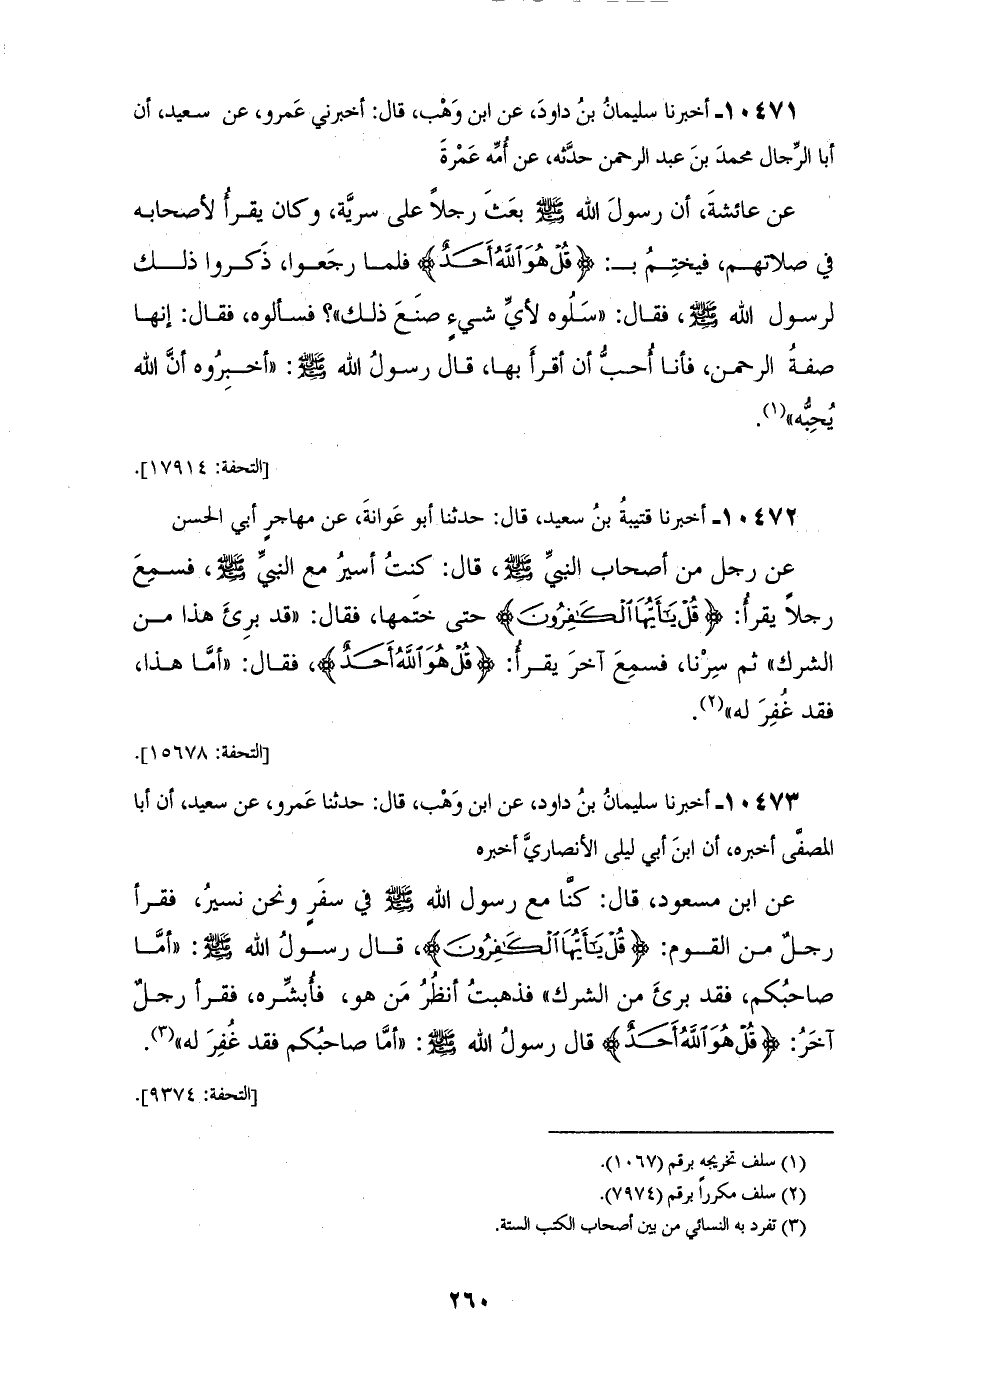 ١٠٤٧١ـ أخبرنا سليمانُ بنُ داودَ، عن ابن وَهْب، قال: أخبرني عَمرو، عن سعيد، أن
أبا الرِّجال محمدَ بنَ عبد الرحمن حدَّثه، عن أُمِّه عَمْرةَ
عن عائشةَ، أن رسولَ الله ﷺ بعَثَ رجلاً على سريَّة، وكان يقرأُ لأصحابه
في صلاتهم، فيختِمُ بـ: ﴿قُلْ هُوَ ٱللَّهُ أَحَدٌ﴾ فلما رجَعوا، ذَكروا ذلك
لرسول الله ﷺ، فقال: «سَلُوه لأيِّ شيءٍ صنَعَ ذلك»؟ فسألوه، فقال: إنها
صفةُ الرحمن، فأنا أُحبُّ أن أقرأَ بها، قال رسولُ الله ﷺ: «أخبِرُوه أنَّ الله
يُحِبُّه»(١).
[التحفة: ١٧٩١٤].
١٠٤٧٢ـ أخبرنا قتيبةُ بنُ سعيد، قال: حدثنا أبو عَوانةَ، عن مهاجرٍ أبي الحسن
عن رجل من أصحاب النبيِّ ﷺ، قال: كنتُ أسيرُ مع النبيِّ ﷺ، فسمِعَ
رجلاً يقرأُ: ﴿قُلْ يَٰٓأَيُّهَا ٱلْكَٰفِرُونَ﴾ حتى ختَمها، فقال: «قد برِئَ هذا من
الشرك» ثم سِرْنا، فسمِعَ آخرَ يقرأُ: ﴿قُلْ هُوَ ٱللَّهُ أَحَدٌ﴾، فقال: «أمَّا هذا،
فقد غُفِرَ له»(٢).
[التحفة: ١٥٦٧٨].
١٠٤٧٣ـ أخبرنا سليمانُ بنُ داود، عن ابن وَهْب، قال: حدثنا عَمرو، عن سعيد، أن أبا
المصفَّى أخبره، أن ابنَ أبي ليلى الأنصاريَّ أخبره
عن ابن مسعود، قال: كنَّا مع رسول الله ﷺ في سفَرٍ ونحن نسيرُ، فقرأ
رجلٌ من القوم: ﴿قُلْ يَٰٓأَيُّهَا ٱلْكَٰفِرُونَ﴾، قال رسولُ الله ﷺ: «أمَّا
صاحبُكم، فقد برئَ من الشرك» فذهبتُ أنظُرُ مَن هو، فأُبشِّره، فقرأ رجلٌ
آخَرُ: ﴿قُلْ هُوَ ٱللَّهُ أَحَدٌ﴾ قال رسولُ الله ﷺ: «أمَّا صاحبُكم فقد غُفِرَ له»(٣).
[التحفة: ٩٣٧٤].
(١) سلف تخريجه برقم (١٠٦٧).
(٢) سلف مكرراً برقم (٧٩٧٤).
(٣) تفرد به النسائي من بين أصحاب الكتب الستة.
٢٦٠